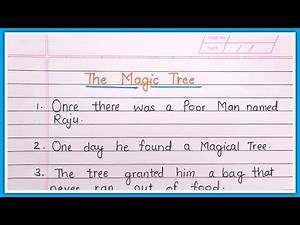 The Magic Tree
1. Once there was a Poor Man named
Raju.
2. One day he found a Magical Tree.
3. The tree granted him a bag that
never ran out of food.